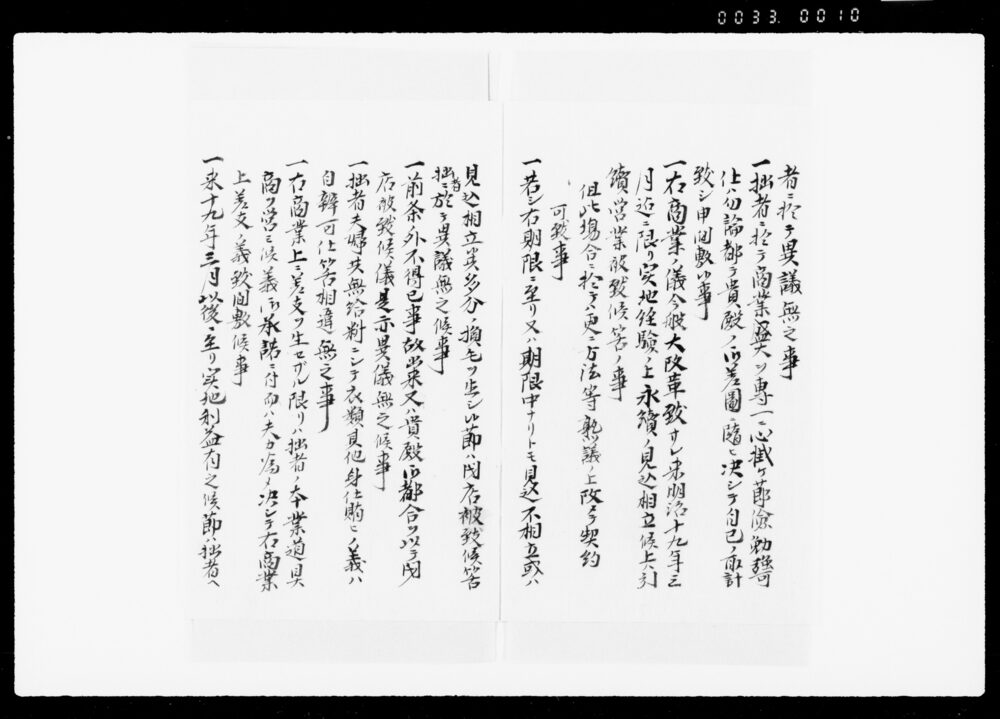 0033. 0010
者ニ於テ異議無之事
一拙者ニ於テ商業盛大ヲ専一ニ心掛ケ節倹勉強可
仕ハ勿論都テ貴殿ノ御差図ニ随ヒ決シテ自己ノ取計
致シ申間敷候事
一右商業ノ儀今般大改革致サレ来明治十九年三
月迄ニ限リ実地経験ノ上永続ノ見込相立候上ハ引
続営業被致候筈ノ事
但此場合ニ於テハ更ニ方法等熟議ノ上改テ契約
可致事
一若シ右期限ニ至リ又ハ期限中ナリトモ見込不相立或ハ
見込相立共多分ノ損毛ヲ生シ候節ハ閉店被致候筈
拙者ニ於テ異議無之候事
一前条ノ外不得已事故出来又ハ貴殿御都合ヲ以テ閉
店被致候儀是亦異儀無之候事
一拙者夫婦共無給料ニシテ衣類其他身仕賄ヒノ義ハ
自辨可仕筈相違無之事
一右商業上ニ差支ヲ生セザル限リハ拙者ノ本業道具
商ヲ営ミ候義御承諾ニ付而ハ夫カ為メ決シテ右商業
上差支ノ義致間敷候事
一来十九年三月以後ニ至リ実地利益有之候節ハ拙者ヘ